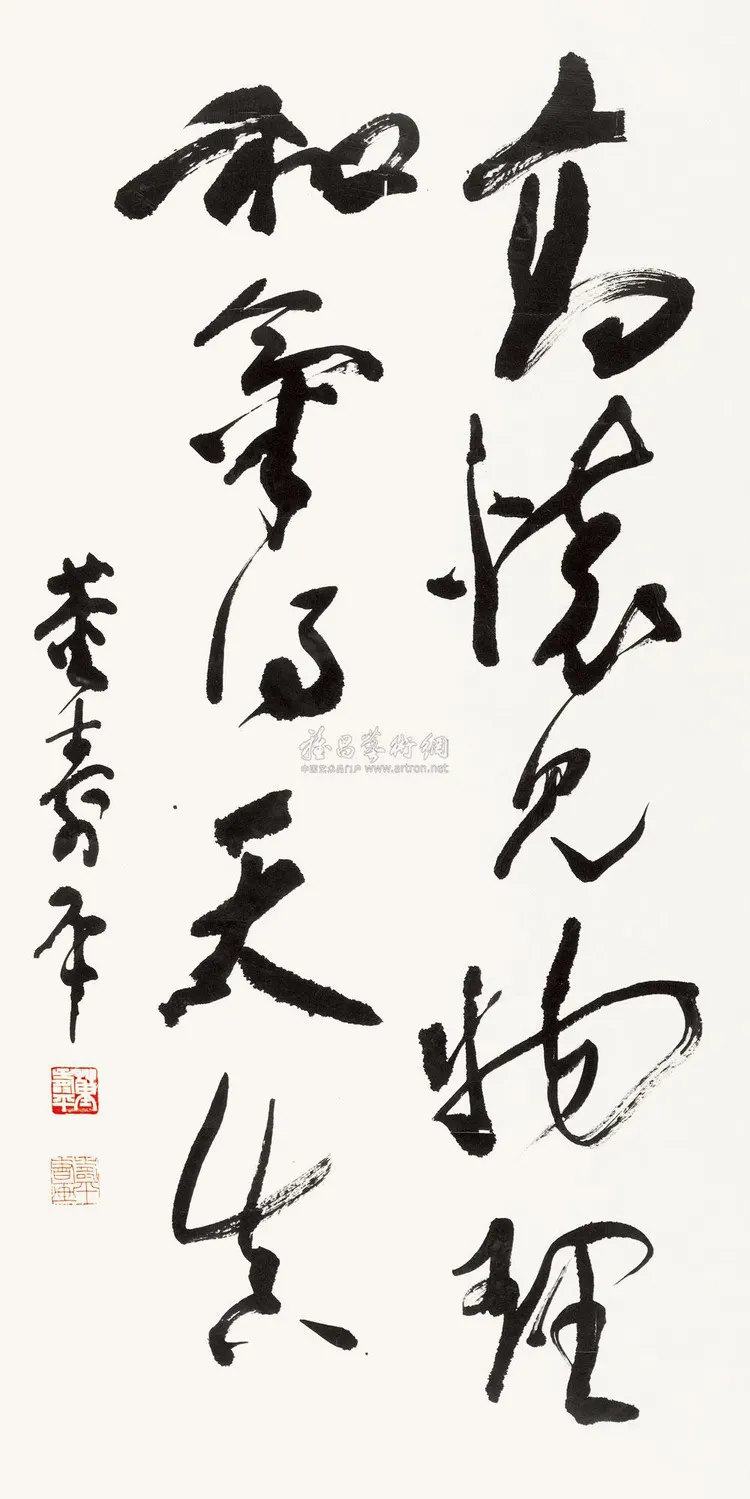 高懷見物理
和氣得天真
董壽平
雅昌藝術網
中国艺术品门户 www.artron.net